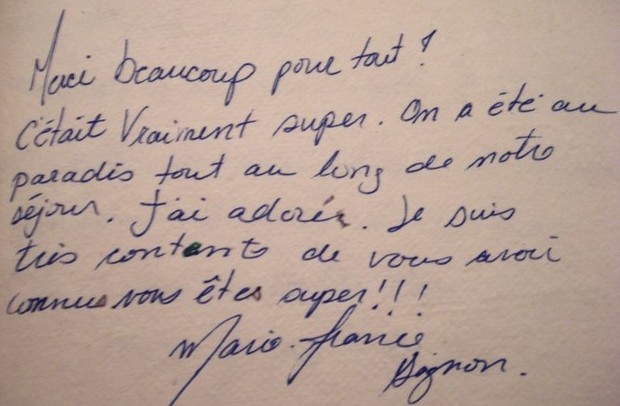 Merci beaucoup pour tout!
C'était Vraiment super. On a été au
paradis tout au long de notre
séjour. J'ai adoré. Je suis
très contente de vous avoir
connus vous êtes super!!!
Marie-france